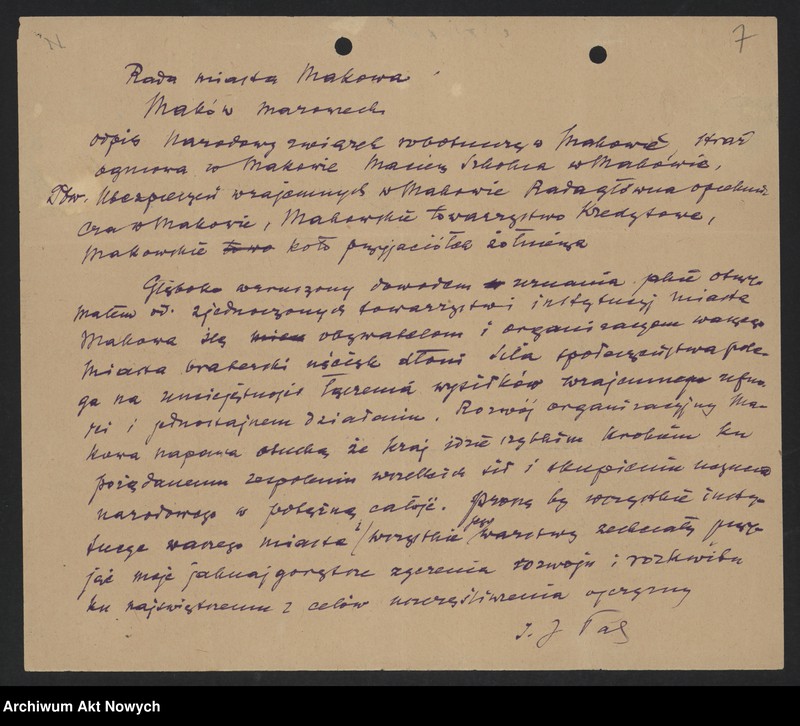 7
Rada miasta Makowa
Maków mazowiecki
odpis Narodowy związek robotniczy w Makowie, straż
ogniowa w Makowie Macierz Szkolna w Makowie,
Tow. Ubezpieczeń wzajemnych w Makowie Rada główna opiekuń
cza w Makowie, Makowskie towarzystwo Kredytowe,
Makowskie towo koło przyjaciół żołnierza
Głęboko wzruszony dowodem uznania jakie otrzy-
małem od zjednoczonych towarzystw i instytucyj miasta
Makowa ślę obywatelom i organizacyom waszego
Miasta braterski uścisk dłoni Siła społeczeństwa pole-
ga na umiejętności łączenia wysiłków wzajemnego ufno-
ści i jednostajnem działaniu. Rozwój organizacyjny Ma-
kowa napawa otuchą że kraj idzie szybkim krokiem ku
pożądanemu zespoleniu wszelkich sił i skupieniu
narodowego w potężną całość. Proszę by wszystkie insty-
tucye waszego miasta i wszystkie jego warstwy zechciały przy-
jąć moje jaknajgorętsze życzenia rozwoju i rozkwitu
ku najświętszemu z celów uszczęśliwienia ojczyzny
I. J Pad
Archiwum Akt Nowych